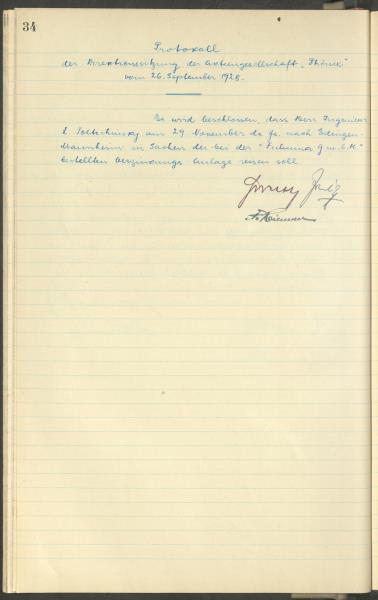 34
Protokoll
der Direktionssitzung der Aktiengesellschaft "Phönix"
vom 26. September 1928.
Es wird beschlossen, dass Herr Ingenieur
am 29 November ds Js. nach
Mannheim in Sachen der bei der "Fulmina G.m.b.H."
bestellten Verzinkungs Anlage reisen soll